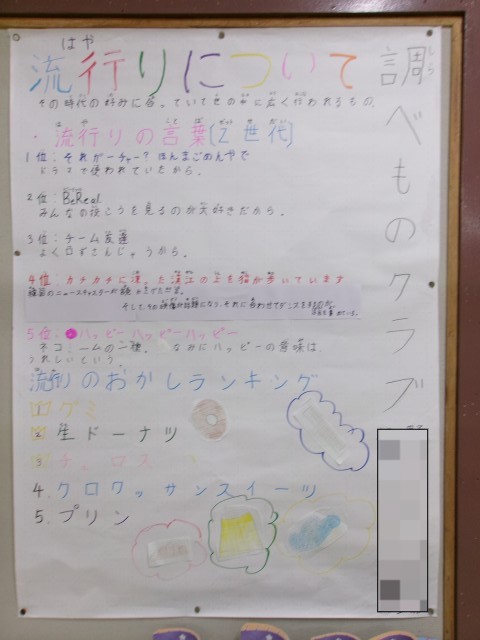 調べものクラブ
しら
はや
流行りについて
その時代の好みに合っていて世の中に広く行われるもの。
・流行りの言葉(Z世代)
1位:それがーチャー?ほんまごめんやで
ドラマで使われていたから。
2位:BeReal
みんなの投こうを見るのが大好きだから。
3位:チーム友達
よく口ずさんじゃうから。
4位:カチカチに凍った の上を猫が歩いています
そして、その映像が話題になり、それに合わせてダンスをするのが
5位:ハッピーハッピーハッピー
ネコミームの一種。ちなみにハッピーの意味は、
うれしいという
流行りのおかしランキング
1 グミ
2 生ドーナツ
3 チュロス
4. クロワッサンスイーツ
5. プリン